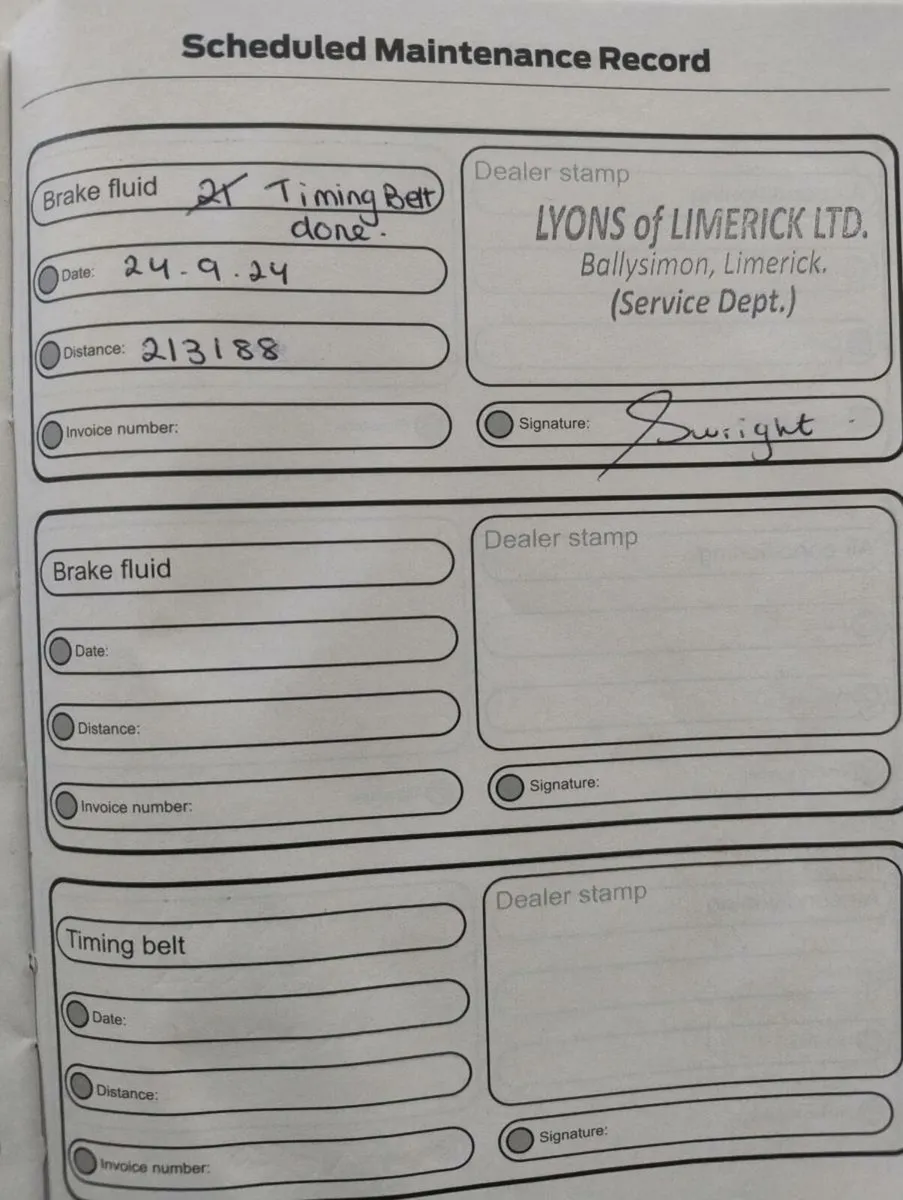 Scheduled Maintenance Record
Brake fluid Timing Belt
done.
Date: 24.9.24
Distance: 213188
Invoice number:
Dealer stamp
LYONS of LIMERICK LTD.
Ballysimon, Limerick.
(Service Dept.)
Signature:
Brake fluid
Date:
Distance:
Invoice number:
Dealer stamp
Signature:
Timing belt
Date:
Distance:
Invoice number:
Dealer stamp
Signature: